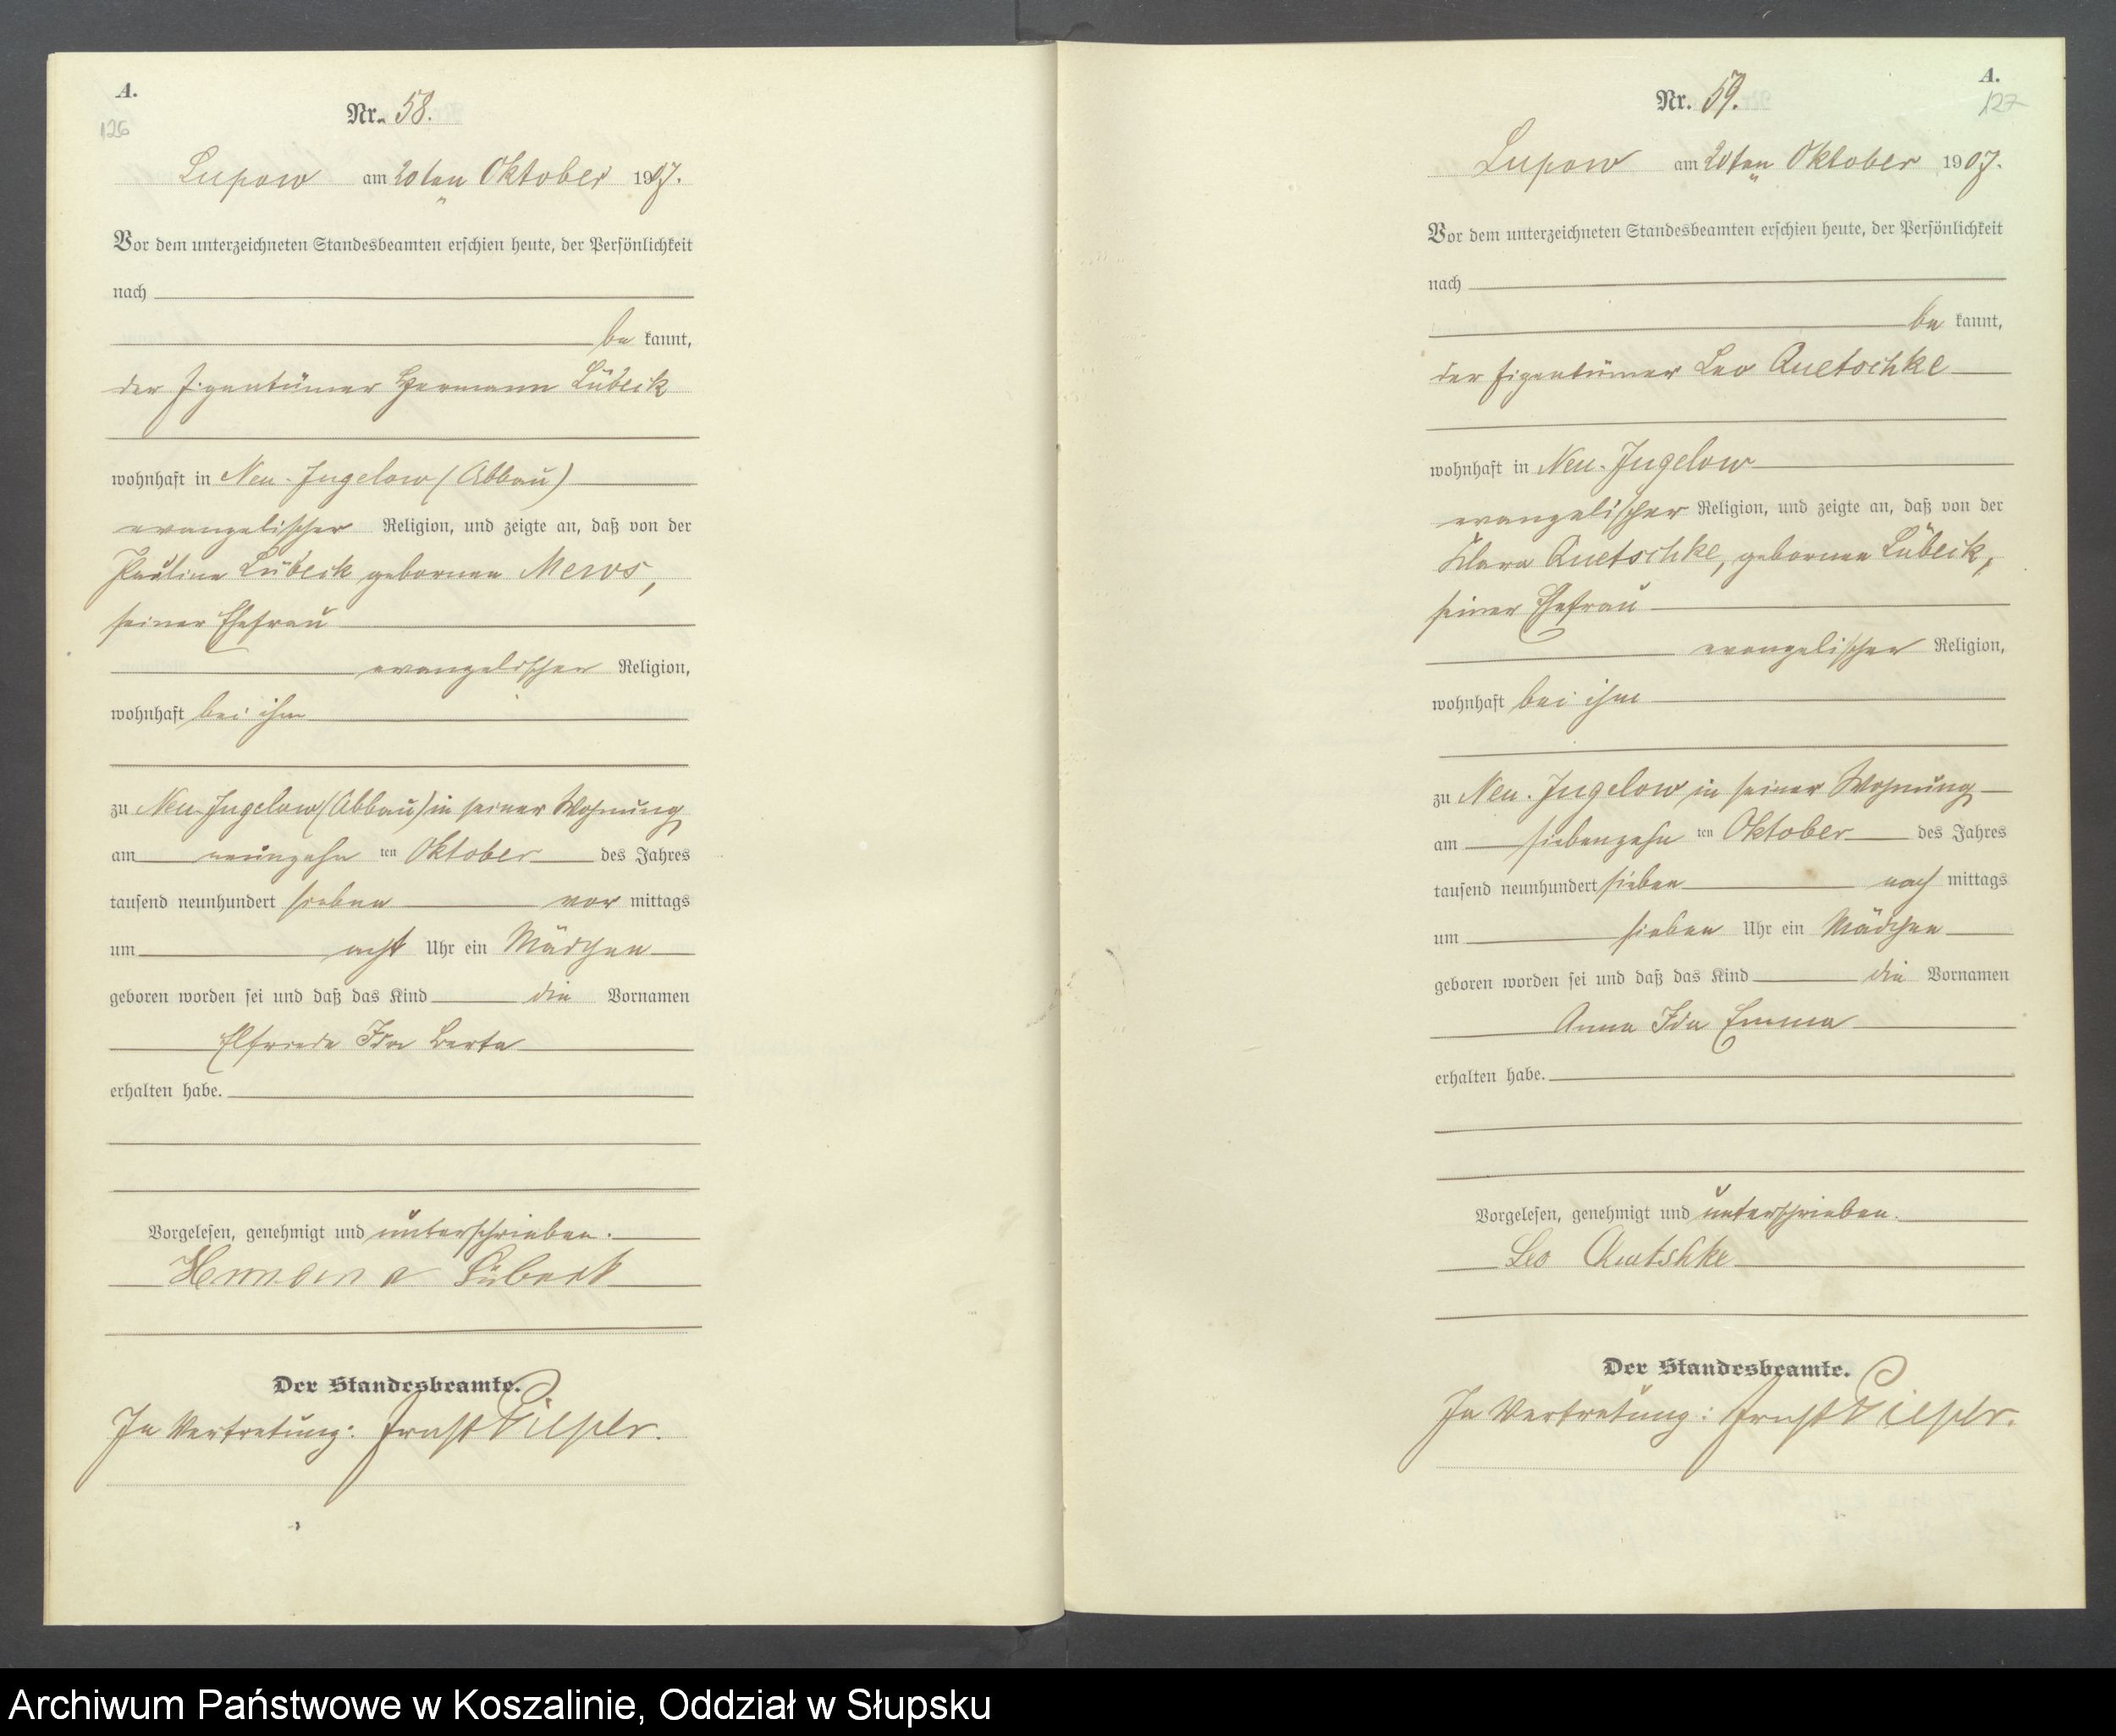 A.
126
Nr. 58.
Lupow am 20ten Oktober 1907.
Vor dem unterzeichneten Standesbeamten erschien heute, der Persönlichkeit
nach
be kannt,
der Eigentümer Hermann Lübeck
wohnhaft in Neu-Jugelow (Abbau)
evangelischer Religion, und zeigte an, daß von der
Pauline Lübeck geborenen Mews,
seiner Ehefrau
evangelischer Religion,
wohnhaft bei ihm
zu Neu-Jugelow (Abbau) in seiner Wohnung
am neunzehn ten Oktober des Jahres
tausend neunhundert sieben vor mittags
um acht Uhr ein Mädchen
geboren worden sei und daß das Kind die Vornamen
Elfriede Ida Berta
erhalten habe.
Vorgelesen, genehmigt und unterschrieben.
Hermann Lübeck
Der Standesbeamte.
In Vertretung: Ernst Piesler.
A.
127
Nr. 59.
Lupow am 20ten Oktober 1907.
Vor dem unterzeichneten Standesbeamten erschien heute, der Persönlichkeit
nach
be kannt,
der Eigentümer Leo Quetschke
wohnhaft in Neu-Jugelow
evangelischer Religion, und zeigte an, daß von der
Klara Quetschke, geborenen Lübeck,
seiner Ehefrau
evangelischer Religion,
wohnhaft bei ihm
zu Neu-Jugelow in seiner Wohnung
am siebenzehn ten Oktober des Jahres
tausend neunhundert sieben nach mittags
um sieben Uhr ein Mädchen
geboren worden sei und daß das Kind die Vornamen
Anna Ida Emma
erhalten habe.
Vorgelesen, genehmigt und unterschrieben.
Leo Quetshke
Der Standesbeamte.
In Vertretung: Ernst Piesler.
Archiwum Państwowe w Koszalinie, Oddział w Słupsku